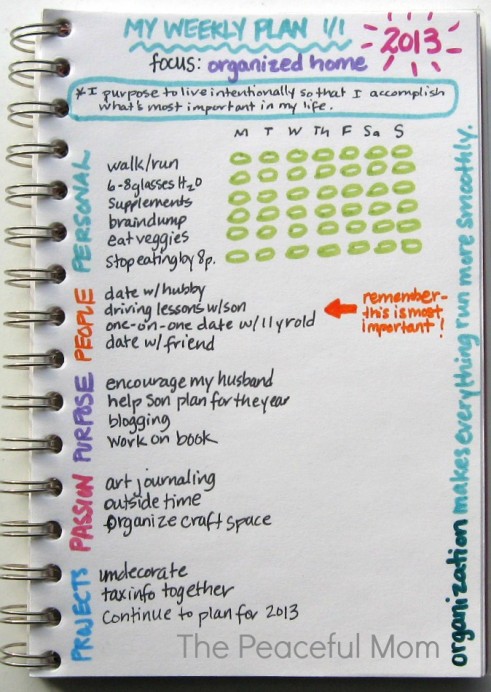 MY WEEKLY PLAN 1/1
2013
focus: organized home
*I purpose to live intentionally so that I accomplish
what's most important in my life.
M T W Th F Sa S
PERSONAL
walk/run
6-8 glasses H₂O
Supplements
braindump
eat veggies
stop eating by 8p.
PEOPLE
date w/hubby
driving lessons w/son
one-on-one date w/11yrold
date w/friend
remember-
this is most
important!
PURPOSE
encourage my husband
help Son plan for the year
blogging
work on book
PASSION
art journaling
outside time
organize craft space
PROJECTS
undecorate
tax info together
Continue to plan for 2013
organization makes everything run more smoothly.
The Peaceful Mom